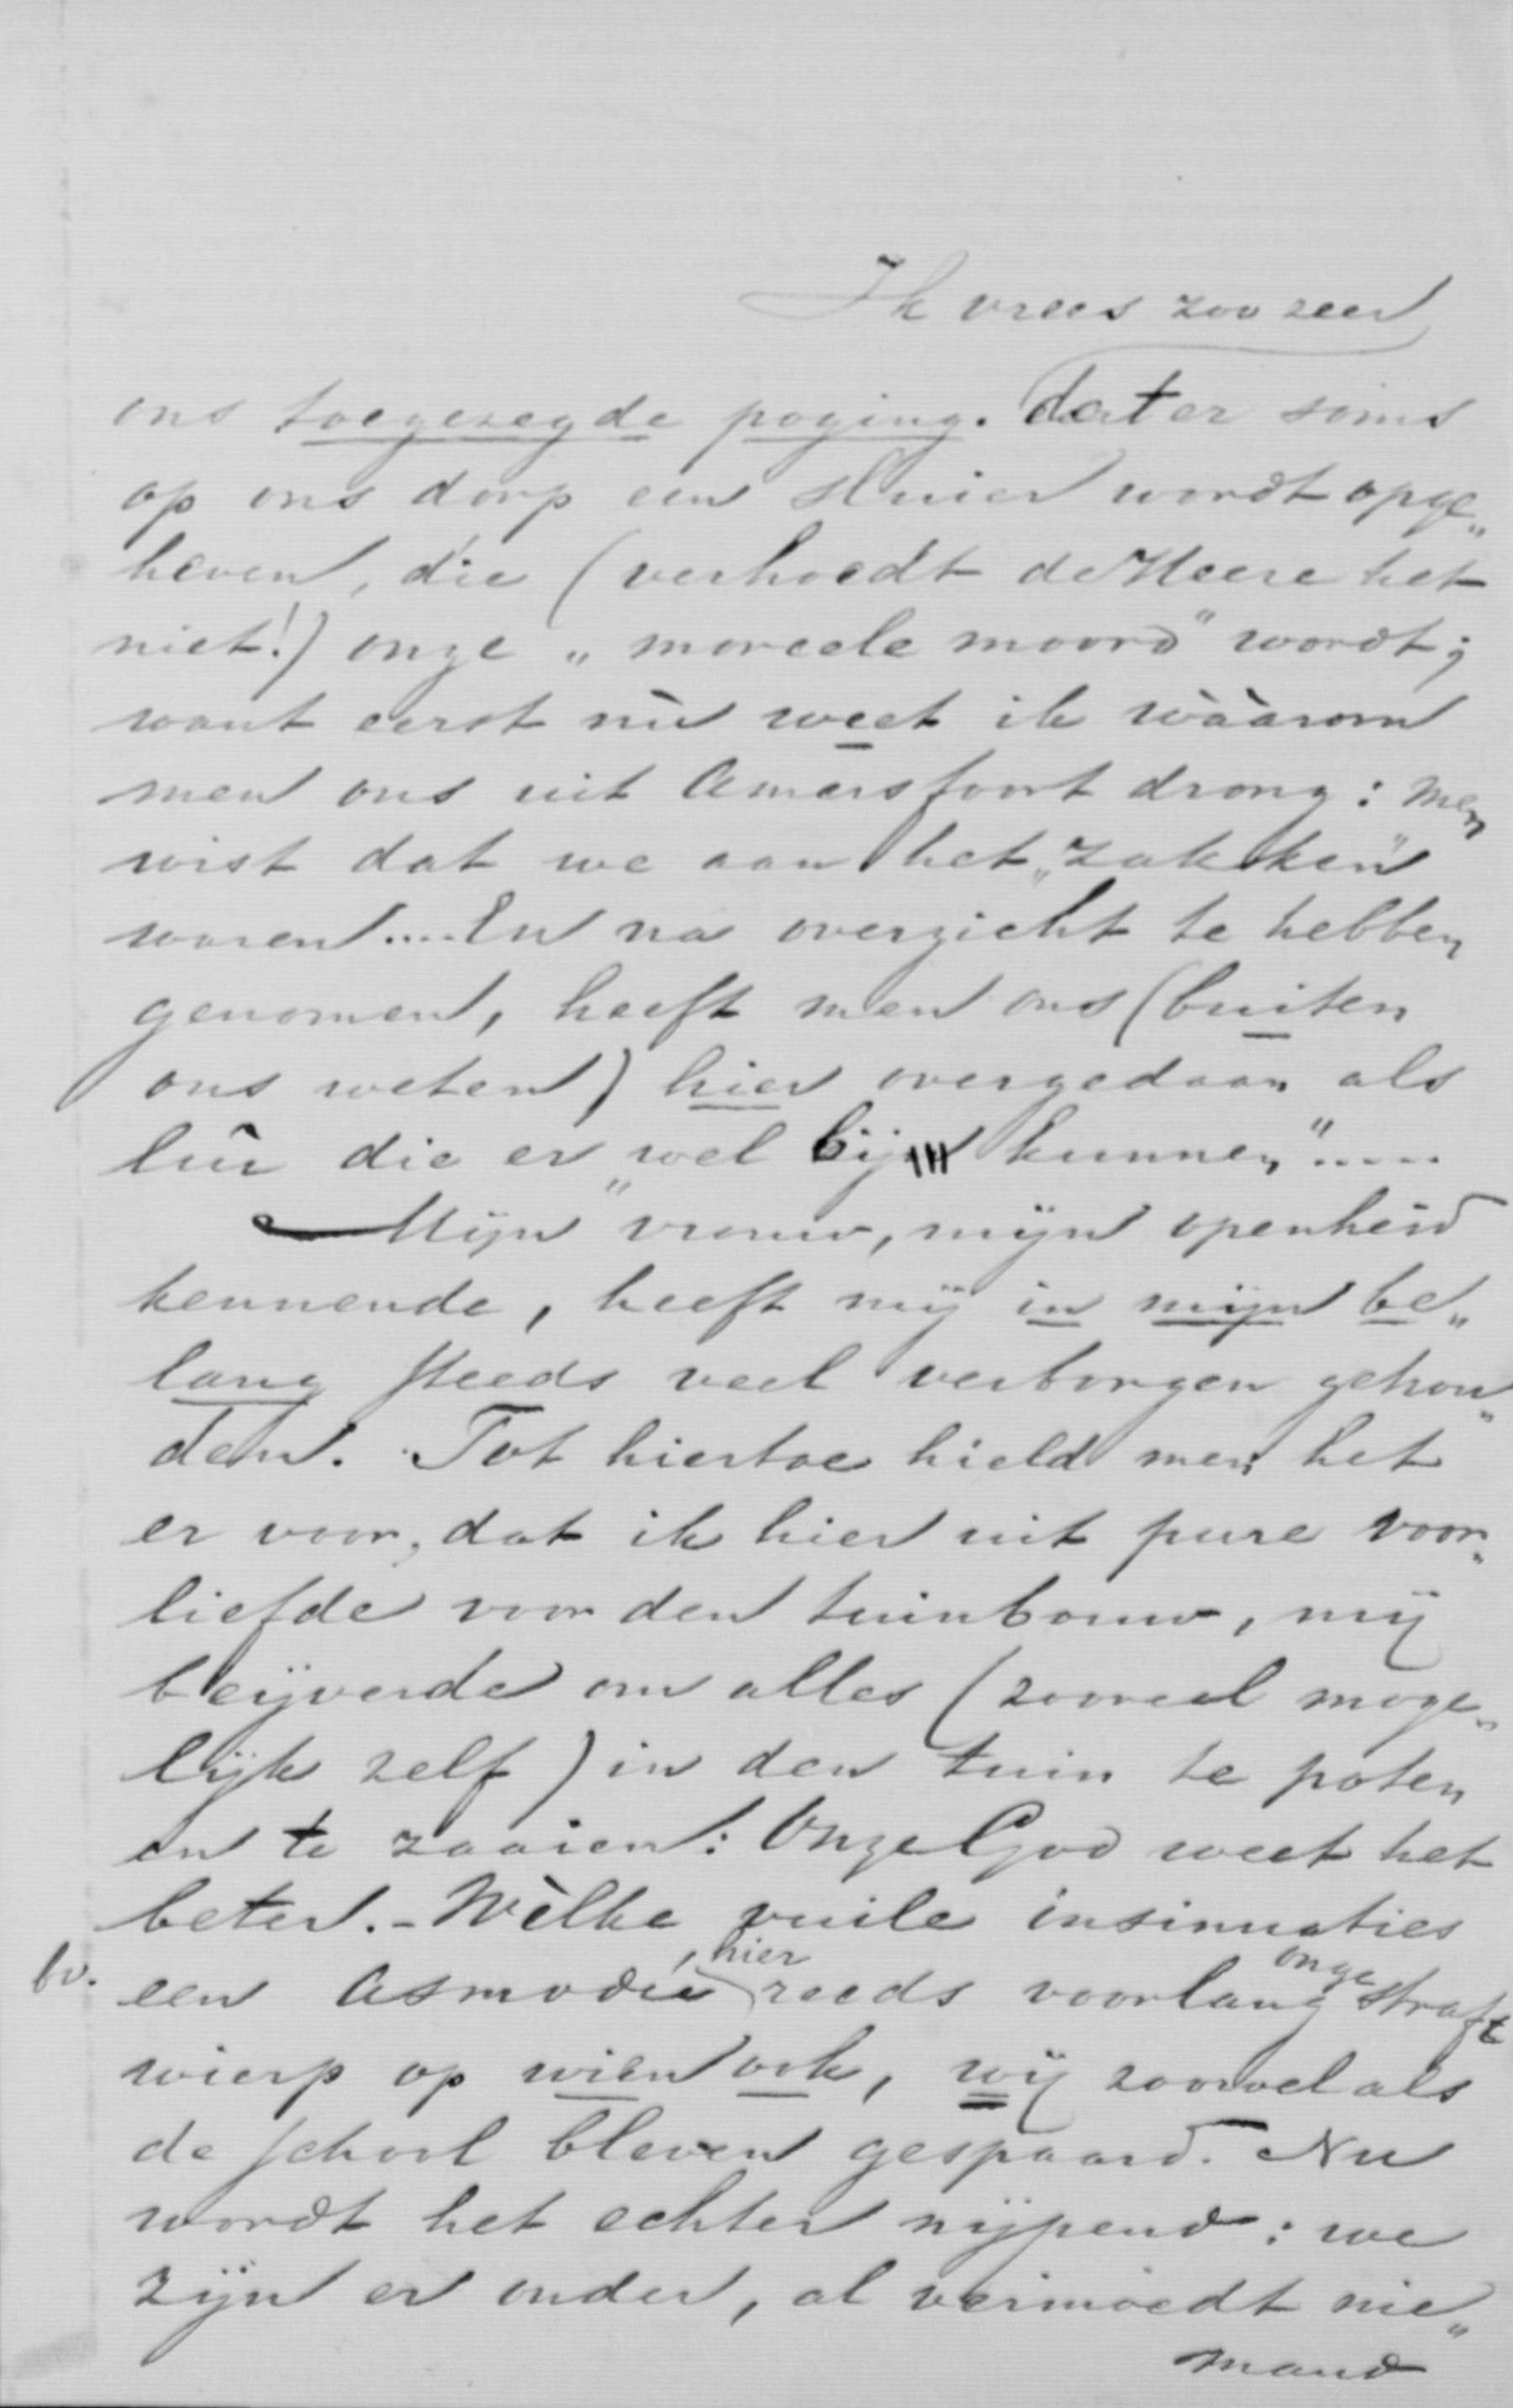 Ik vrees zoo zeer
ons toegezegde poging. dat er soms
op ons dorp een sluier wordt opge„
heven, die (verhoedt de Heere het
niet!) onze „moreele moord" wordt;
want eerst nù weet ik wààrom
men ons uit Amersfoort drong: men
wist dat we aan het „zakken"
waren.... En na overzicht te hebben
genomen, heeft men ons (buiten
ons weten) hier overgedaan als
luî die er „wel bij kunnen".....
Mijn vrouw, mijn openheid
kennende, heeft mij in mijn be„
lang steeds veel verborgen gehou„
den. Tot hiertoe hield men het
er voor, dat ik hier uit pure voor„
liefde voor den tuinbouw, mij
beijverde om alles (zooveel moge„
lijk zelf) in den tuin te poten
en te zaaien: Onze God weet het
beter. - Wèlke vuile insinuaties
bv. een Asmodée, hier reeds voorlang ongestraft
wierp op wien ook, wij zoowel als
de school bleven gespaard. Nu
wordt het echter nijpend: we
zijn er onder, al vermoedt nie„
mand